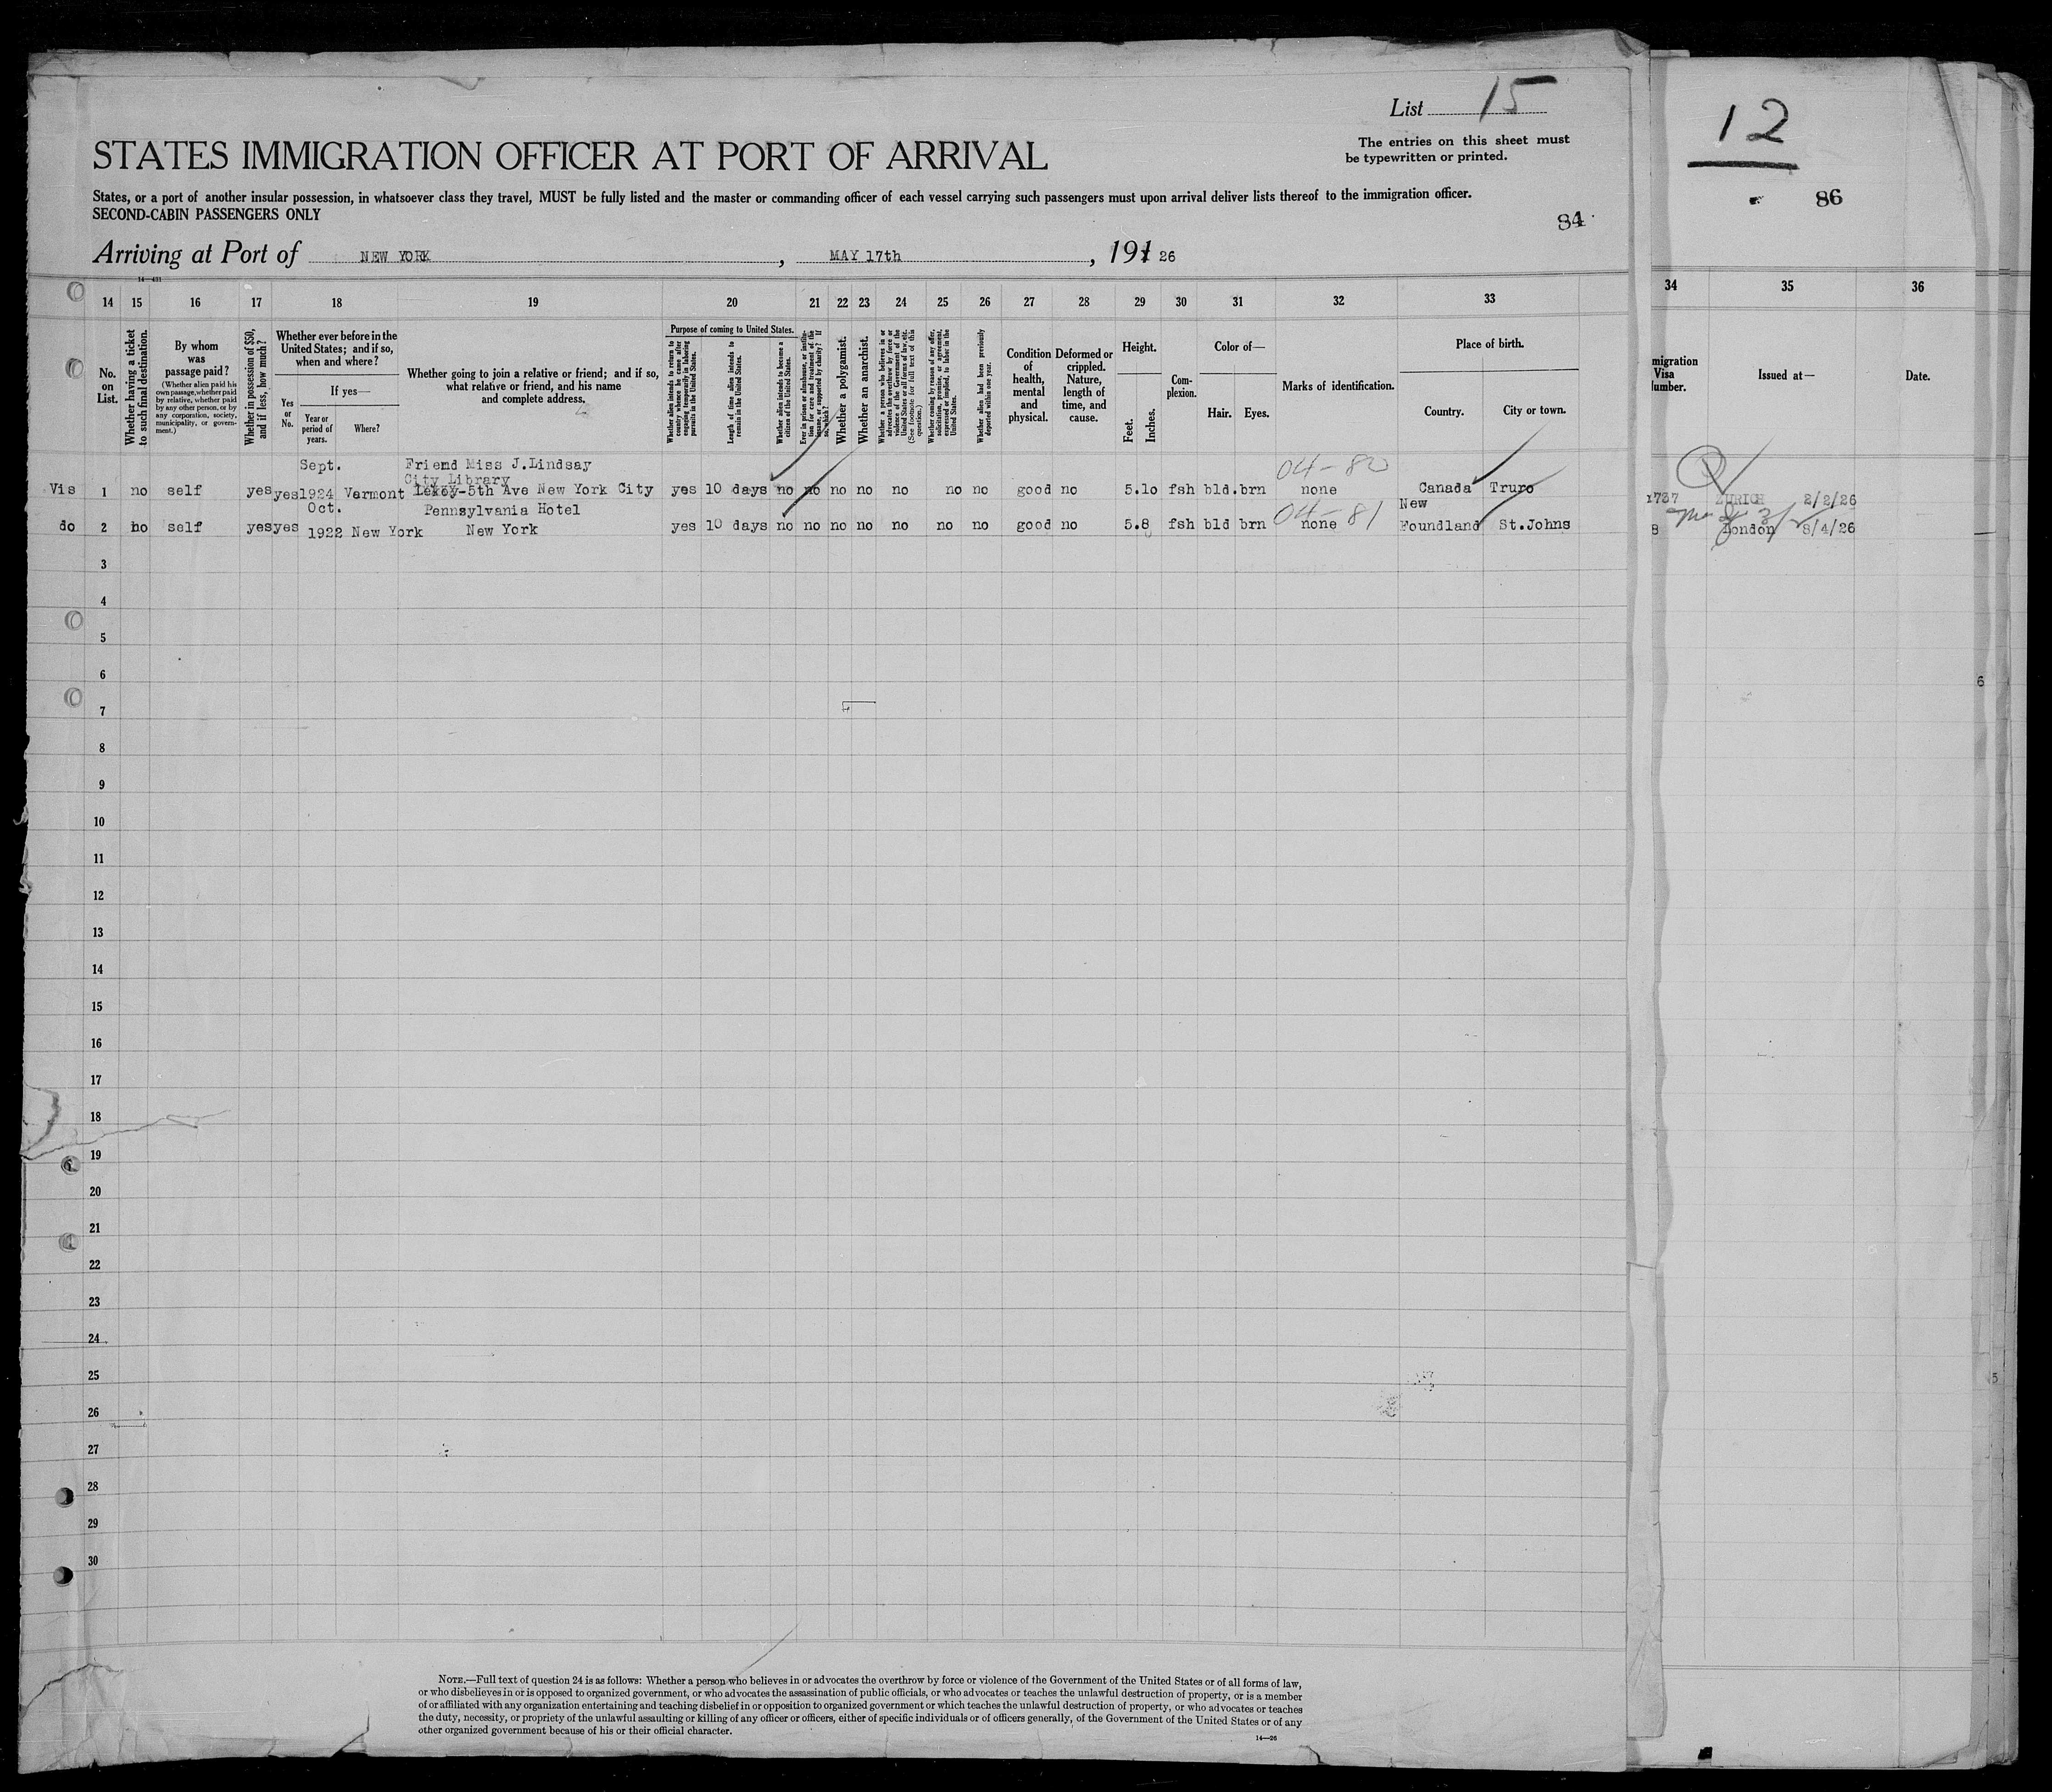 List 15
The entries on this sheet must
be typewritten or printed.
STATES IMMIGRATION OFFICER AT PORT OF ARRIVAL
States, or a port of another insular possession, in whatsoever class they travel, MUST be fully listed and the master or commanding officer of each vessel carrying such passengers must upon arrival deliver lists thereof to the immigration officer.
SECOND-CABIN PASSENGERS ONLY
84
Arriving at Port of NEW YORK, MAY 17th, 191 26
12
86
14 15 16 17 18 19 20 21 22 23 24 25 26 27 28 29 30 31 32 33 34 35 36
No. on List.
Whether having a ticket to such final destination.
By whom was passage paid?
(Whether alien paid his own passage, whether paid by relative, whether paid by any other person, or by any corporation, society, municipality, or government.)
Whether in possession of $50, and if less, how much?
Whether ever before in the United States; and if so, when and where?
Yes or No.
If yes—
Year or period of years.
Where?
Whether going to join a relative or friend; and if so, what relative or friend, and his name and complete address.
Purpose of coming to United States.
Whether alien intends to return to country whence he came after engaging temporarily in laboring pursuits in the United States.
Length of time alien intends to remain in the United States.
Whether alien intends to become a citizen of the United States.
Ever in prison or almshouse, or institution for care and treatment of the insane, or supported by charity? If so, which?
Whether a polygamist.
Whether an anarchist.
Whether a person who believes in or advocates the overthrow by force or violence of the Government of the United States or all forms of law, etc. (See footnote for full text of this question.)
Whether coming by reason of any offer, solicitation, promise, or agreement, expressed or implied, to labor in the United States.
Whether alien had been previously deported within one year.
Condition of health, mental and physical.
Deformed or crippled. Nature, length of time, and cause.
Height.
Feet.
Inches.
Complexion.
Color of—
Hair. Eyes.
Marks of identification.
Place of birth.
Country.
City or town.
migration Visa umber.
Issued at—
Date.
Sept. Friend Miss J.Lindsay
City Library
04-80
Vis 1 no self yes yes 1924 Varmont -5th Ave New York City yes 10 days no no no no no no no good no 5.10 fsh bld. brn none Canada Truro 1737 ZURICH 2/2/26
Oct. Pennsylvania Hotel
04-81 New
do 2 no self yes yes 1922 New York New York yes 10 days no no no no no no no good no 5.8 fsh bld brn none Foundland St.Johns 8 London 8/4/26
3
4
5
6
7
8
9
10
11
12
13
14
15
16
17
18
19
20
21
22
23
24
25
26
27
28
29
30
NOTE.—Full text of question 24 is as follows: Whether a person who believes in or advocates the overthrow by force or violence of the Government of the United States or of all forms of law,
or who disbelieves in or is opposed to organized government, or who advocates the assassination of public officials, or who advocates or teaches the unlawful destruction of property, or is a member
of or affiliated with any organization entertaining and teaching disbelief in or opposition to organized government or which teaches the unlawful destruction of property, or who advocates or teaches
the duty, necessity, or propriety of the unlawful assaulting or killing of any officer or officers, either of specific individuals or of officers generally, of the Government of the United States or of any
other organized government because of his or their official character.
14—26